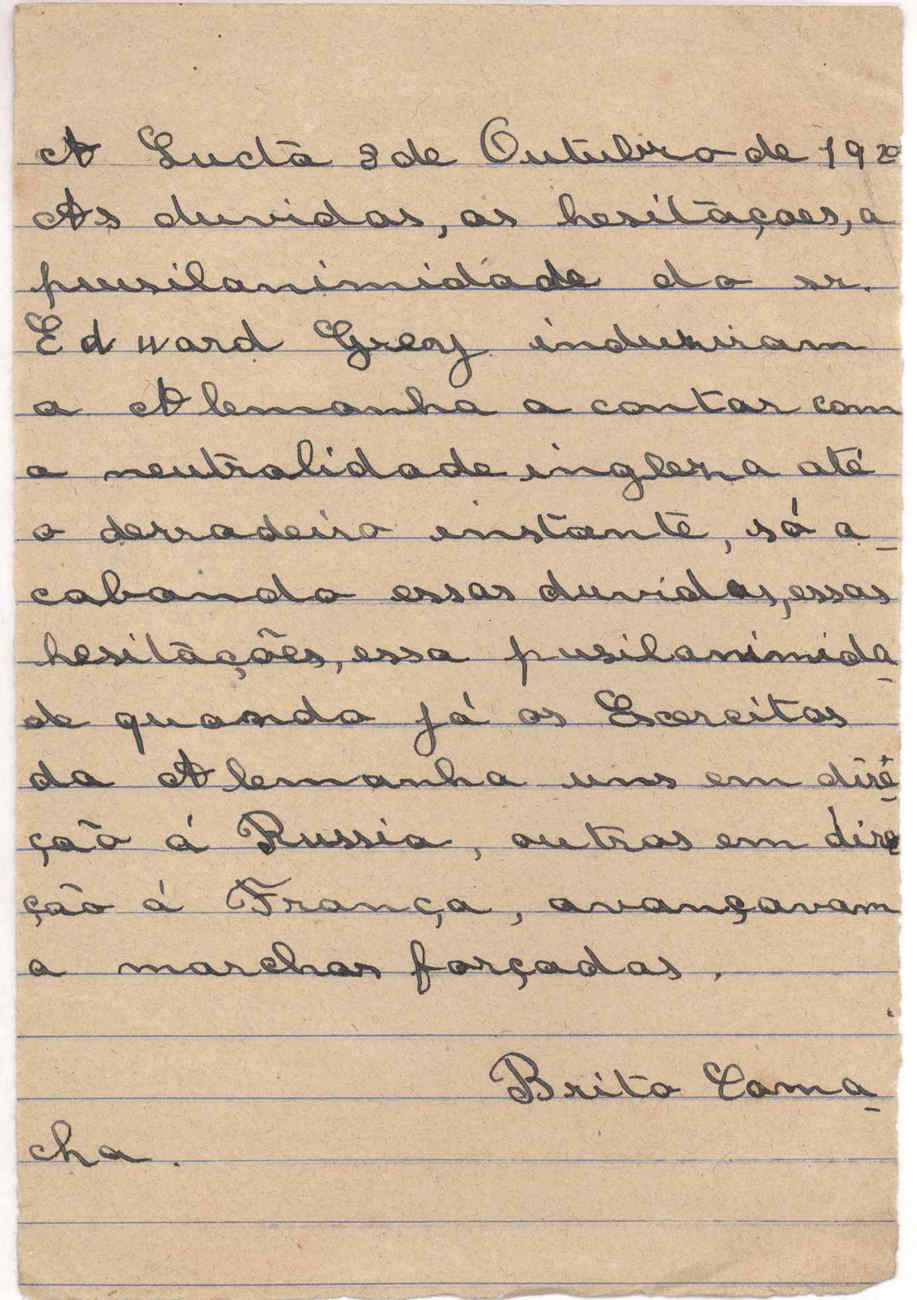 A Luctā 3 de Outubro de 1920
As duvidas, as hesitāçoes, a
pusilanimidade do sr.
Edward Grey induziram
a Alemanha a contar com
a neutralidade ingleza até
o derradeiro instante, só a-
cabando essas duvidas, essas
hesitāções, essa pusilanimida-
de quando já os Exercitos
da Alemanha uns em dire-
ção á Russia, outros em dire
ção á França, avançavam
a marchas forçadas.
Brito Cama-
cha.